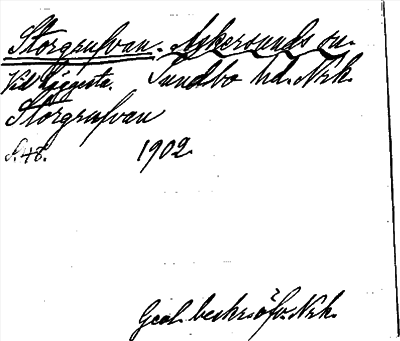 Storgrufvan. Askersunds sn.
Vid Låggesta. Sundbo hd. Nrk.
Storgrufvan
S. 48. 1902
Geol. beskr. öfv. Nrk.